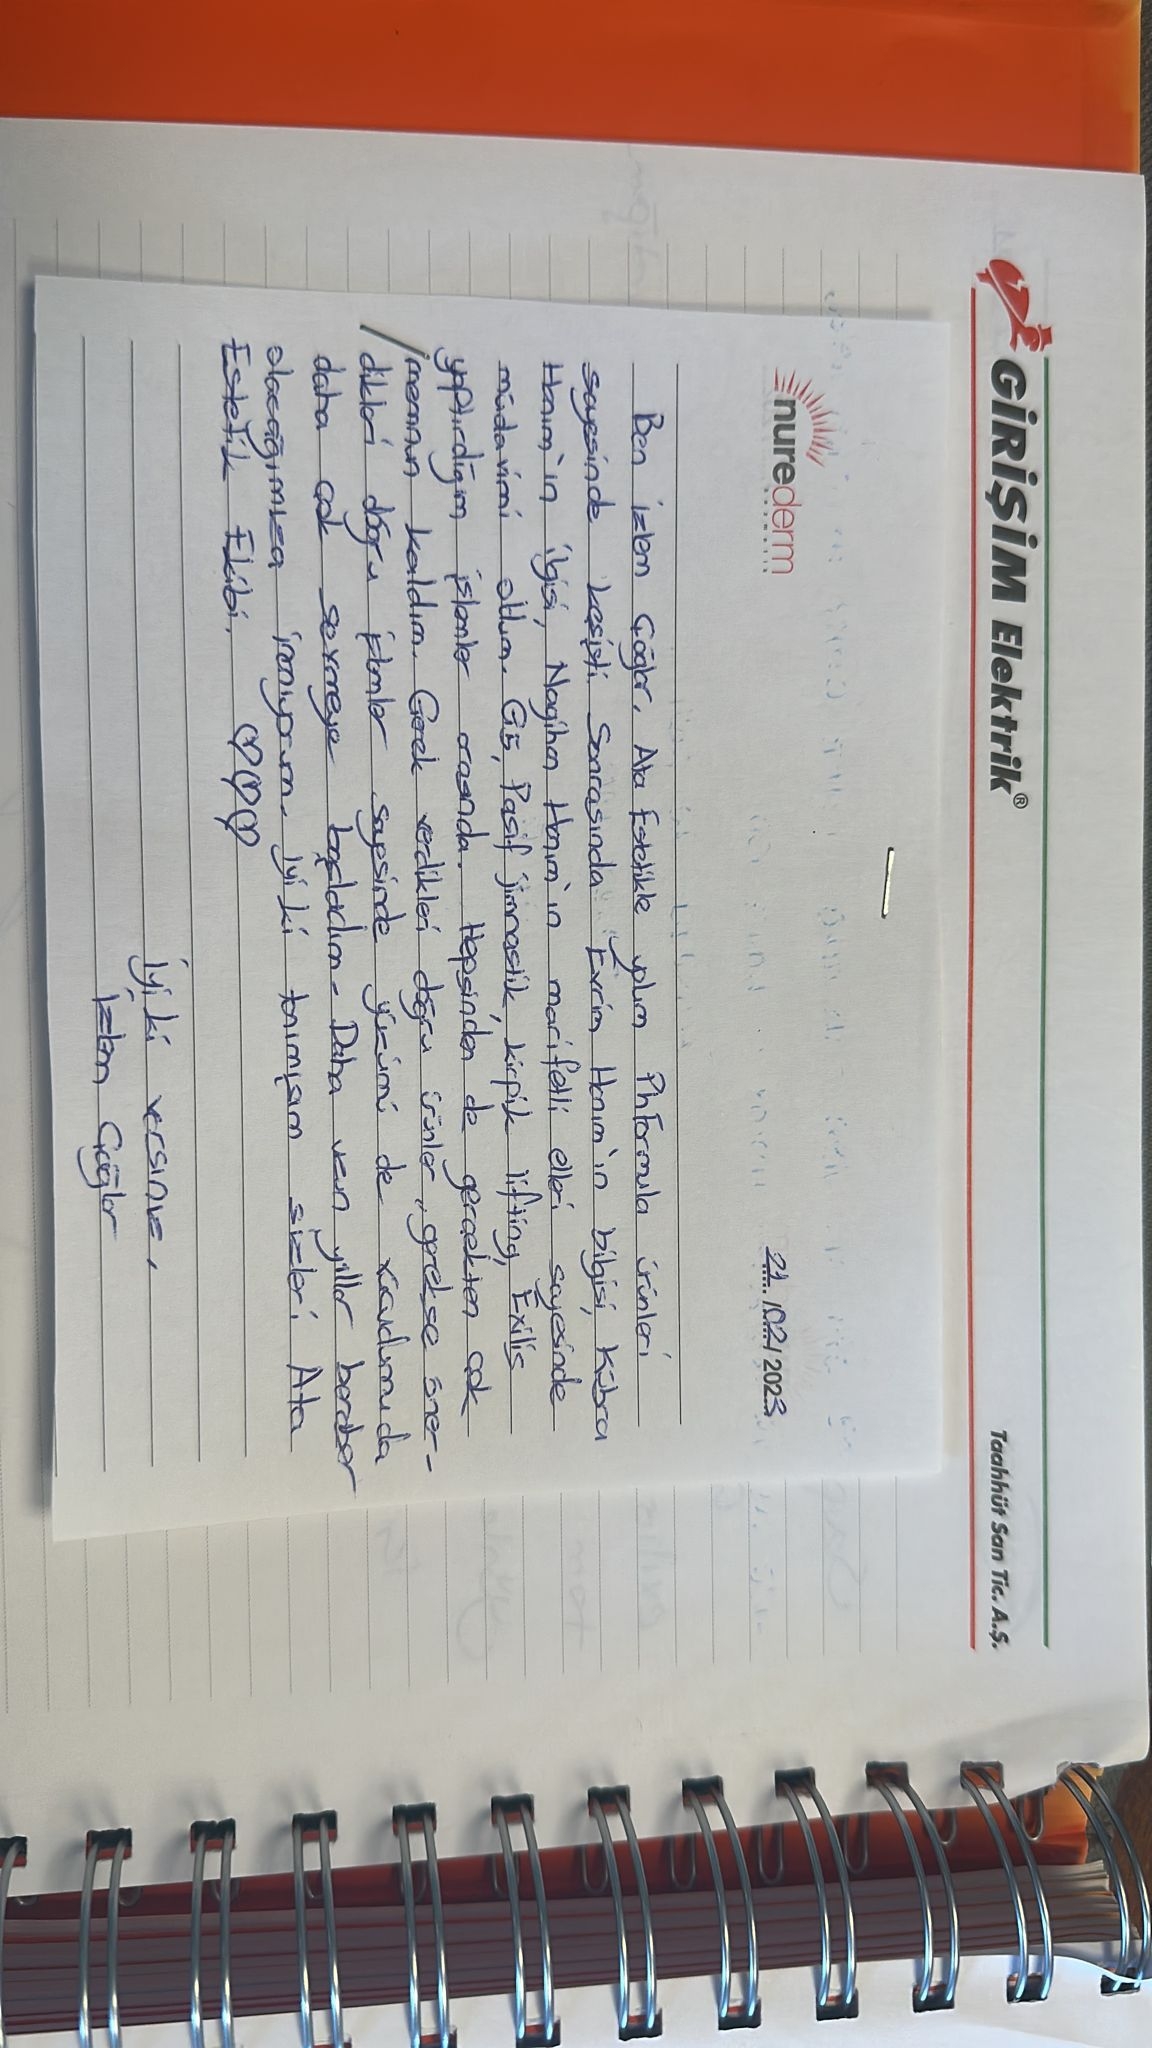 GİRİŞİM Elektrik®
Taahhüt San Tic. A.Ş.
nurederm
21/02/2023
Ben İzlem Çağlar, Ata Estetikle yolum Phformula ürünleri
sayesinde kesişti. Sonrasında Evrim Hanım'ın bilgisi, Kübra
Hanım'ın ilgisi, Nagihan Hanım'ın marifetli elleri sayesinde
müdavimi oldum. G5, Pasif jimnastik, kirpik lifting, Exilis
yaptırdığım işlemler arasında. Hepsinden de gerçekten çok
memnun kaldım. Gerek verdikleri doğru ürünler, gerekse öner-
dikleri doğru işlemler sayesinde yüzümü de vücudumu da
daha çok sevmeye başladım. Daha uzun yıllar beraber
olacağımıza inanıyorum. İyi ki tanımışım sizleri Ata
Estetik Ekibi. ♡♡♡
İyi ki varsınız,
İzlem Çağlar